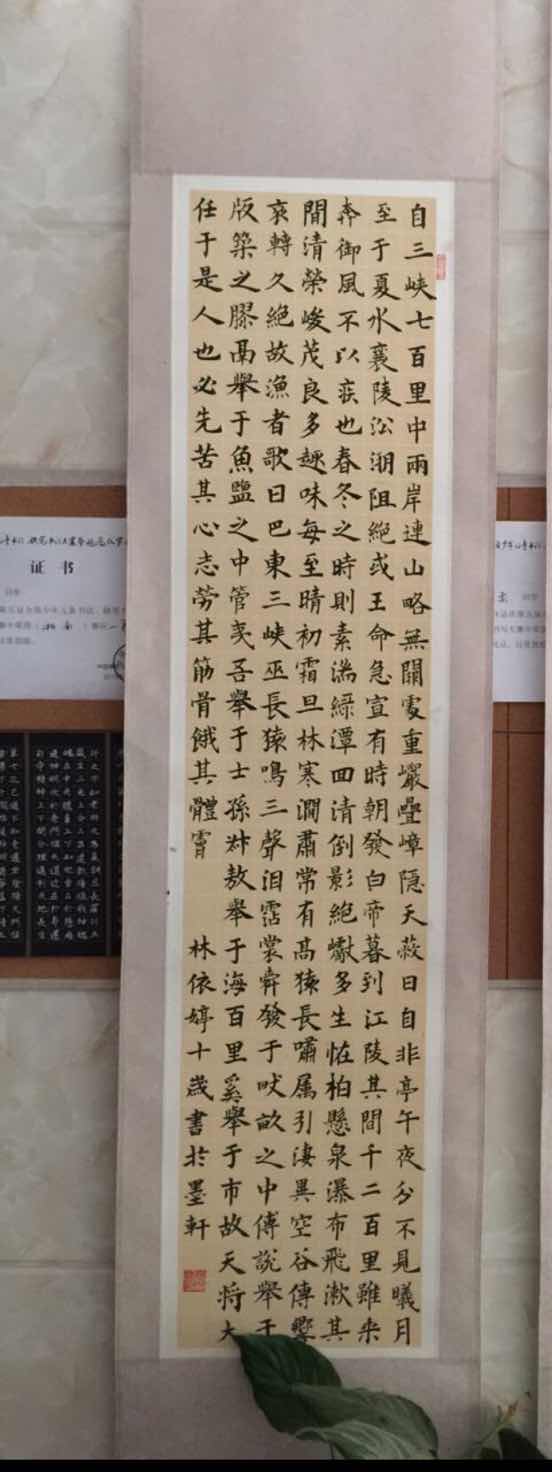 自三峡七百里中兩岸連山略無闕處重巖疊嶂隐天蔽日自非亭午夜分不見曦月
至于夏水襄陵沿泝阻絶或王命急宣有時朝發白帝暮到江陵其間千二百里雖乘
奔御風不以疾也春冬之時則素湍緑潭回清倒影絶巘多生怪柏懸泉瀑布飛漱其
間清榮峻茂良多趣味每至晴初霜旦林寒澗肅常有高猿長嘯属引淒異空谷傳響
哀轉久絶故漁者歌曰巴東三峡巫長猿鳴三聲泪霑裳舜發于畎畝之中傅説舉于
版築之膠鬲舉于魚鹽之中管夷吾舉于士孫叔敖舉于海百里奚舉于市故天将大
任于是人也必先苦其心志劳其筋骨餓其體膚
林依婷十歲書於墨軒
证书